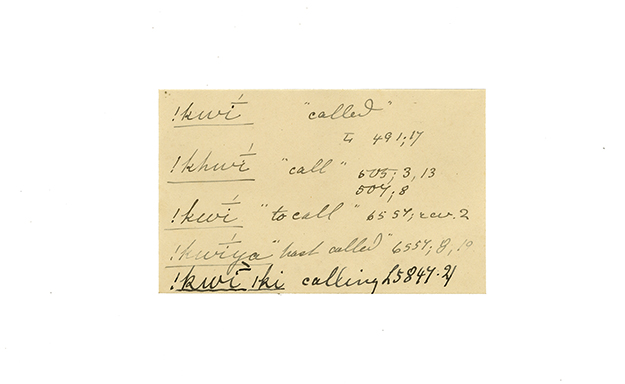 !kwī "called"
L 491;17
!khwī "call" 505; 3, 13
507, 8
!kwī "to call" 6557; rev. 2
!kwīya "hast called" 6557; 8, 10
!kwī |ki calling L5847.